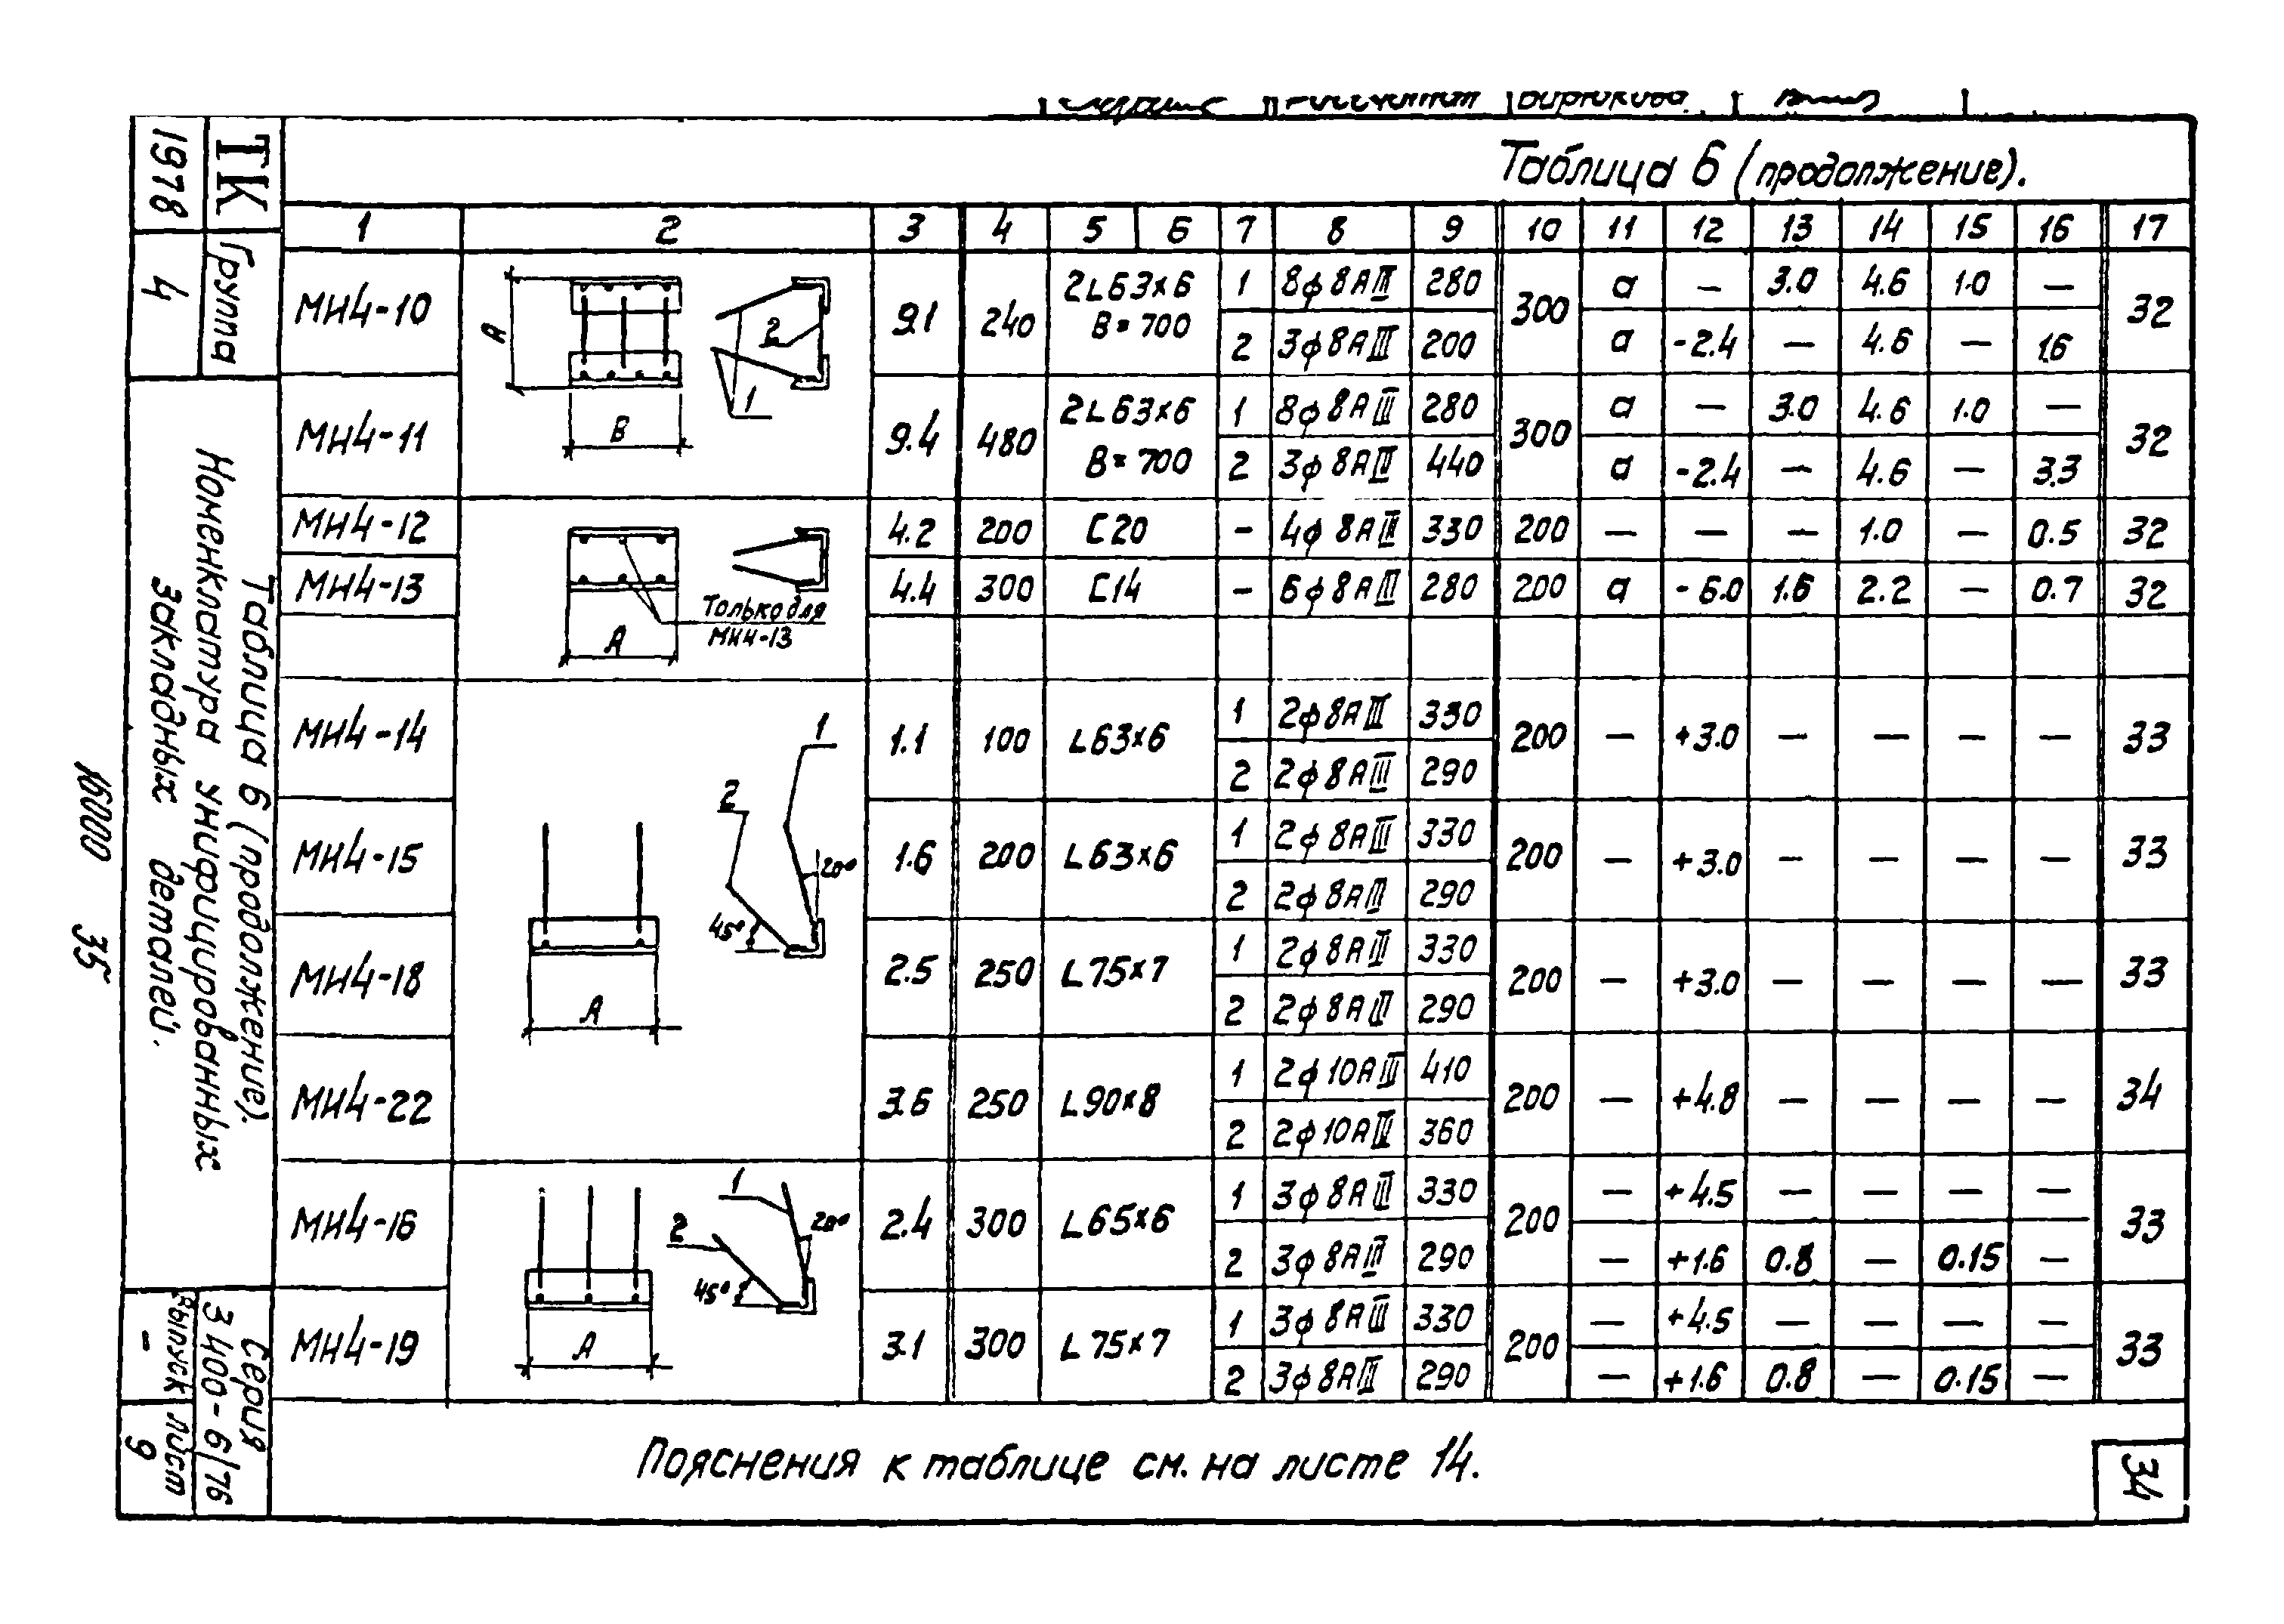 Таблица 6 (продолжение).
1 2 3 4 5 6 7 8 9 10 11 12 13 14 15 16 17
МН4-10 9.1 240 2L63×6 В=700 1 8ф8АIII 280 300 а — 3.0 4.6 1.0 — 32
2 3ф8АIII 200 а -2.4 — 4.6 — 1.6
А 2 1 В
МН4-11 9.4 480 2L63×6 В=700 1 8ф8АIII 280 300 а — 3.0 4.6 1.0 — 32
2 3ф8АIII 440 а -2.4 — 4.6 — 3.3
МН4-12 4.2 200 С20 - 4ф8АIII 330 200 — — — 1.0 — 0.5 32
МН4-13 4.4 300 С14 - 6ф8АIII 280 200 а -6.0 1.6 2.2 — 0.7 32
Только для
МН4-13
А
МН4-14 1.1 100 L63×6 1 2ф8АIII 330 200 — +3.0 — — — — 33
2 2ф8АIII 290
1 2 20° 45° А
МН4-15 1.6 200 L63×6 1 2ф8АIII 330 200 — +3.0 — — — — 33
2 2ф8АIII 290
МН4-18 2.5 250 L75×7 1 2ф8АIII 330 200 — +3.0 — — — — 33
2 2ф8АIII 290
МН4-22 3.6 250 L90×8 1 2ф10АIII 410 200 — +4.8 — — — — 34
2 2ф10АIII 360
МН4-16 2.4 300 L65×6 1 3ф8АIII 330 200 — +4.5 — — — — 33
2 3ф8АIII 290 — +1.6 0.8 — 0.15 —
1 2 20° 45° А
МН4-19 3.1 300 L75×7 1 3ф8АIII 330 200 — +4.5 — — — — 33
2 3ф8АIII 290 — +1.6 0.8 — 0.15 —
Пояснения к таблице см. на листе 14.
34
ТК
1978
Группа
4
Таблица 6 (продолжение).
Номенклатура унифицированных
закладных деталей.
Серия
3400-6/76
Выпуск
-
лист
9
16000 35